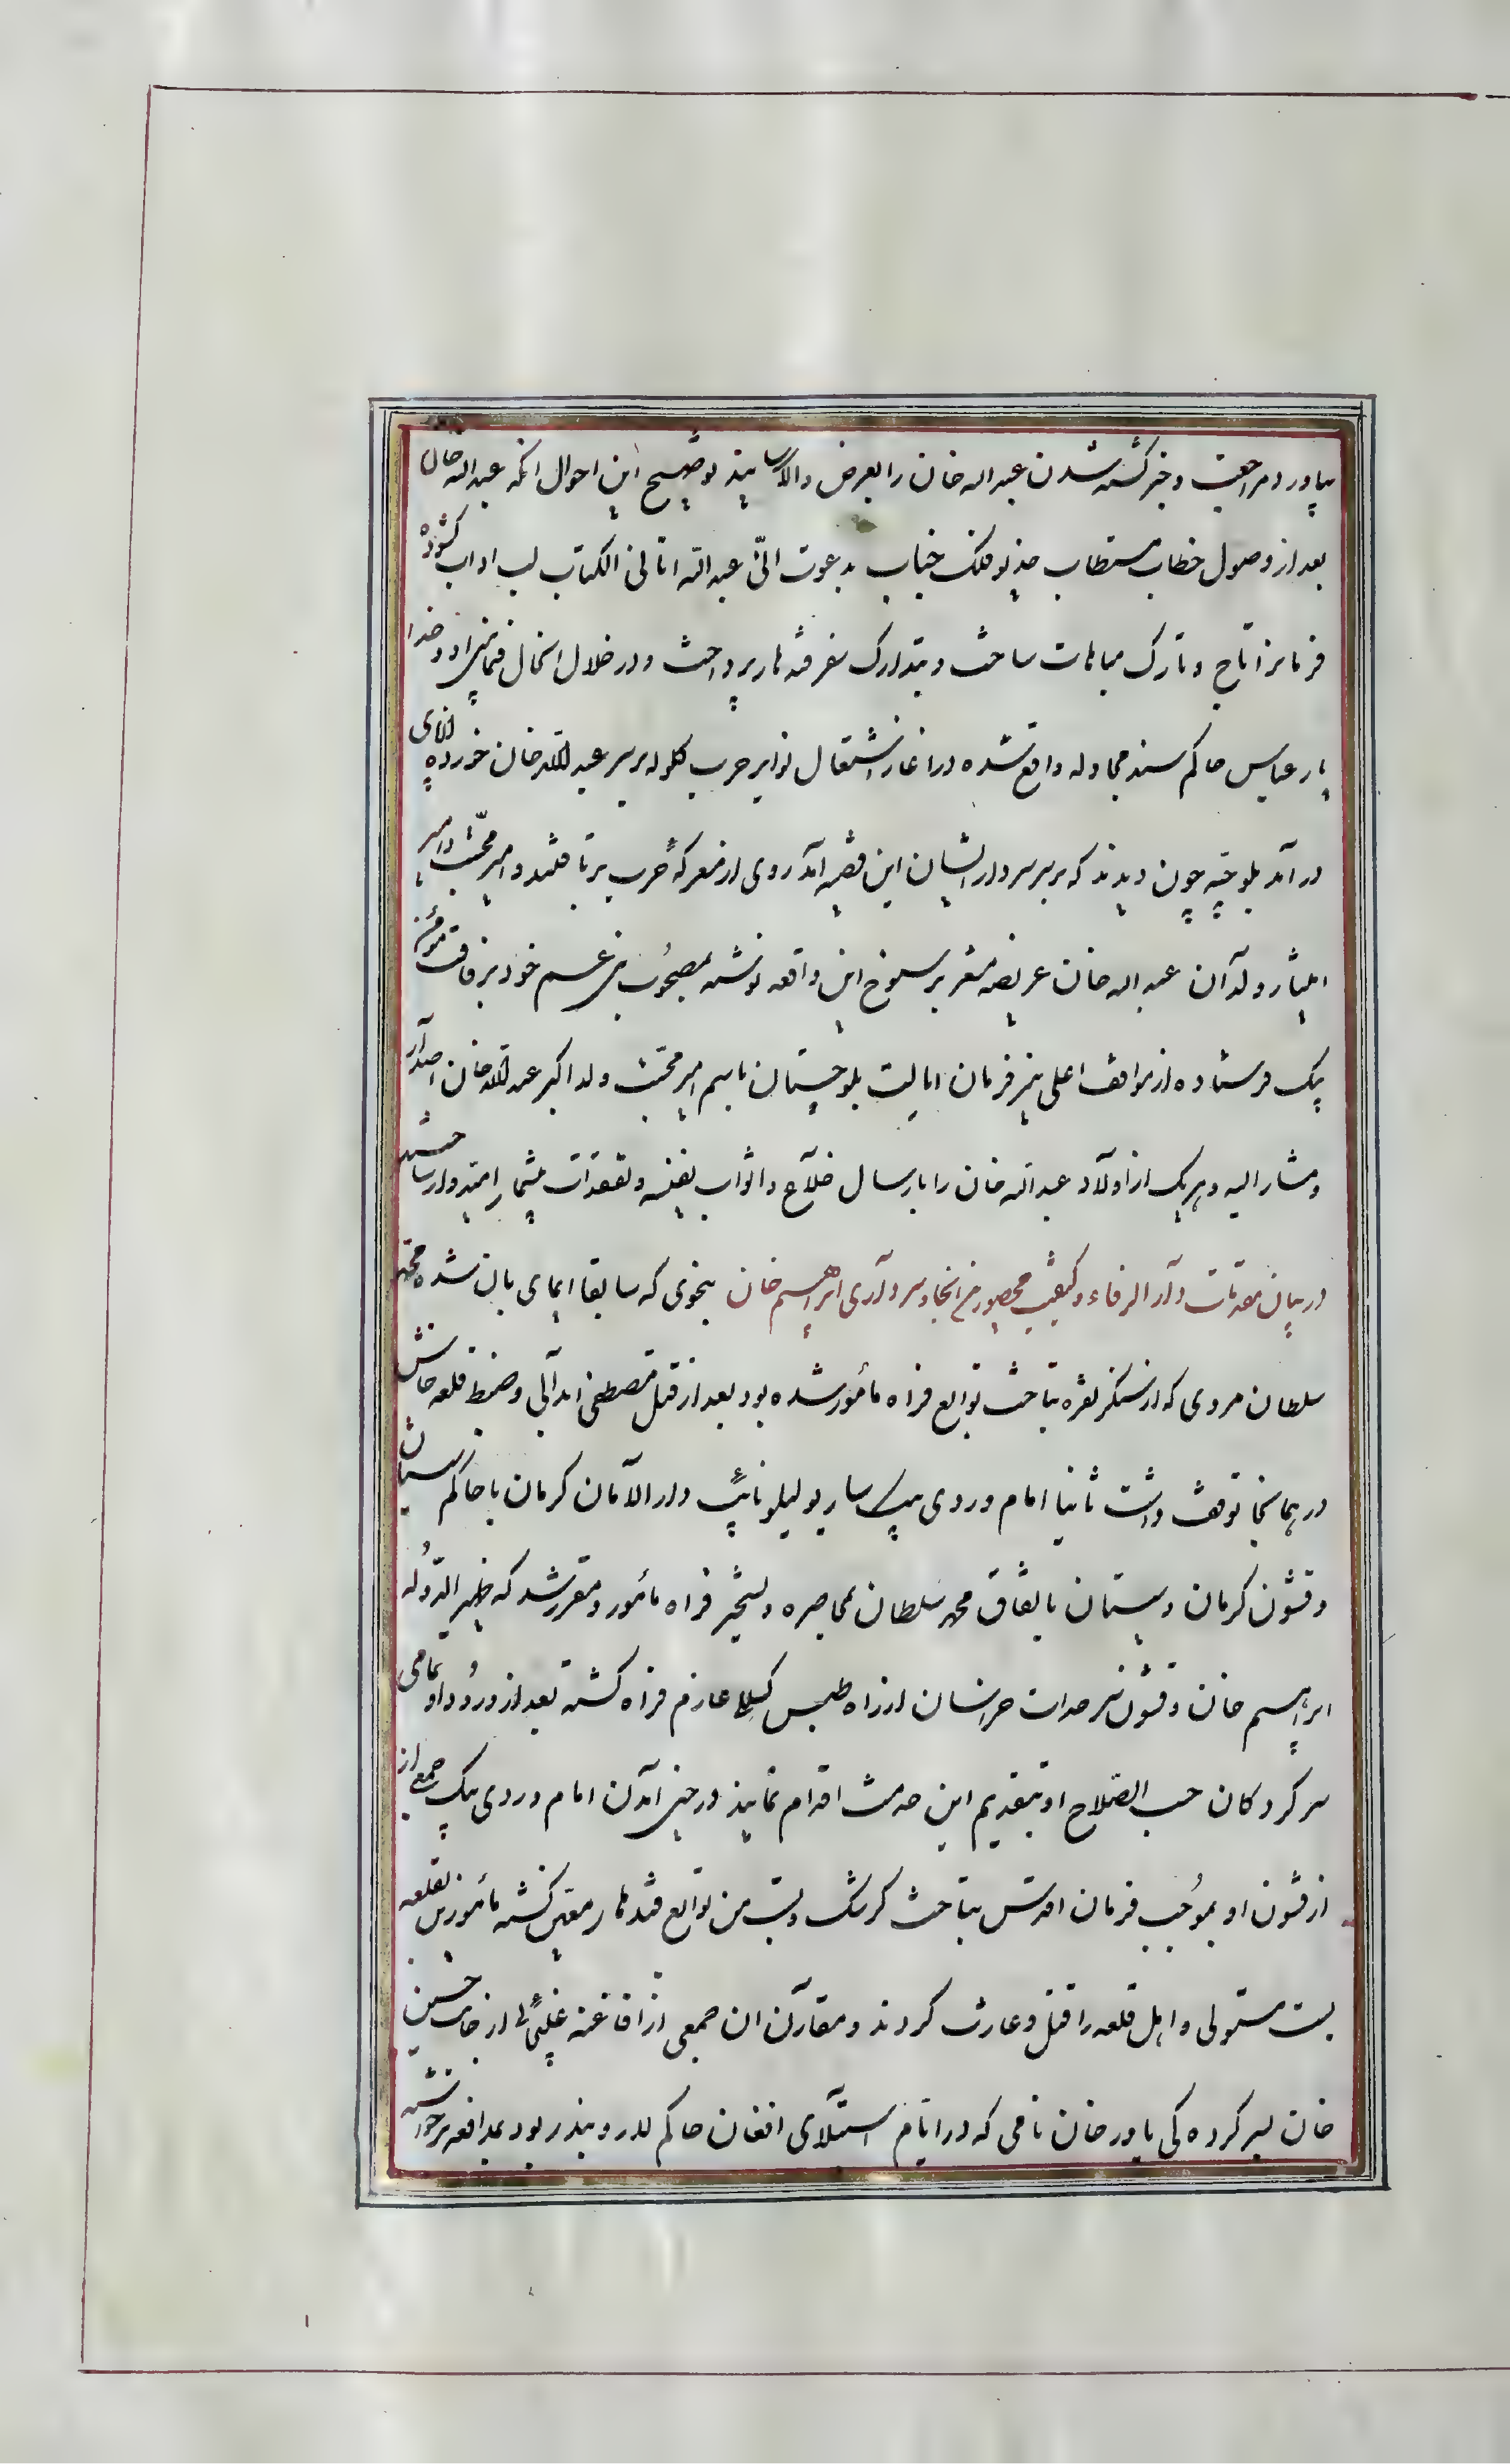 بیاورد مراجعت و خبر کشته شدن عبداله خان را بعرض والا رسانید توضیح این احوال انکه عبداله خان
بعد از وصول خطاب مستطاب خدیو فلک جناب بدعوت انی عبداللّه اتانی الکتاب لب اداب کشوده
فرمانرا تاج و تارک مباهات ساخت و بتدارک سفر قندهار پرداخت و در خلال انحال فیمابین او و خدا
یار عباس حاکم سند مجادله واقع شده در اغاز اشتعال نوایر حرب گلوله بر سر عبداللّه خان خورده از پای
در آمد بلوچیه چون دیدند که بر سر سردار ایشان این قضیه آمد روی از معرکهٔ حرب برتافتند و امیر محبت و امیر
ایلتیار ولدان عبداله خان عریضه مشعر بر سنوح این واقعه نوشته بمصحوب بنی عم خود برفاقت مؤمن
بیک فرستاده از مواقف اعلی نیز فرمان ایالت بلوچستان باسم امیر محبت ولد اکبر عبداللّه خان اصدار
و مشار الیه و هر یک از اولاد عبداللّه خان را بارسال خلاع و اثواب نفیسه و تفقدات بیشمار امیدوار ساختند
در بیان مقدمات دار الرفاء و کیفیت محصورین انجا و سرداری ابراهیم خان بنحوی که سابقا ایمای بان شده محمد
سلطان مروی که از سنگر نقره بتاخت توابع فراه مأمور شده بود بعد از قتل مصطفی ابدالی و ضبط قلعه خاش
در همانجا توقف داشت ثانیا امام وردی بیک نایب دار الامان کرمان با حاکم سیستان
و قشون کرمان و سیستان باتفاق محمد سلطان بمحاصره و تسخیر فراه مأمور و مقرر شد که ظهیر الدوله
ابراهیم خان و قشون سرحدات خراسان از راه طبس کیلکی عازم فراه گشته بعد از ورود او تمامی
سرکردکان حسب الصلاح او بتقدیم این خدمت اقدام نمایند در حین آمدن امام وردی بیک جمعی از
از قشون او بموجب فرمان اقدس بتاخت کرشک و بست من توابع قندهار معین گشته مأمورین بقلعه
بست مستولی و اهل قلعه را قتل و غارت کردند و مقارن ان جمعی از افاغنه غلیجائی از جانب حسین
خان بسرکرده کی یاور خان نامی که در ایام استیلای افغان حاکم لار و بندر بود بمدافعه برخواسته